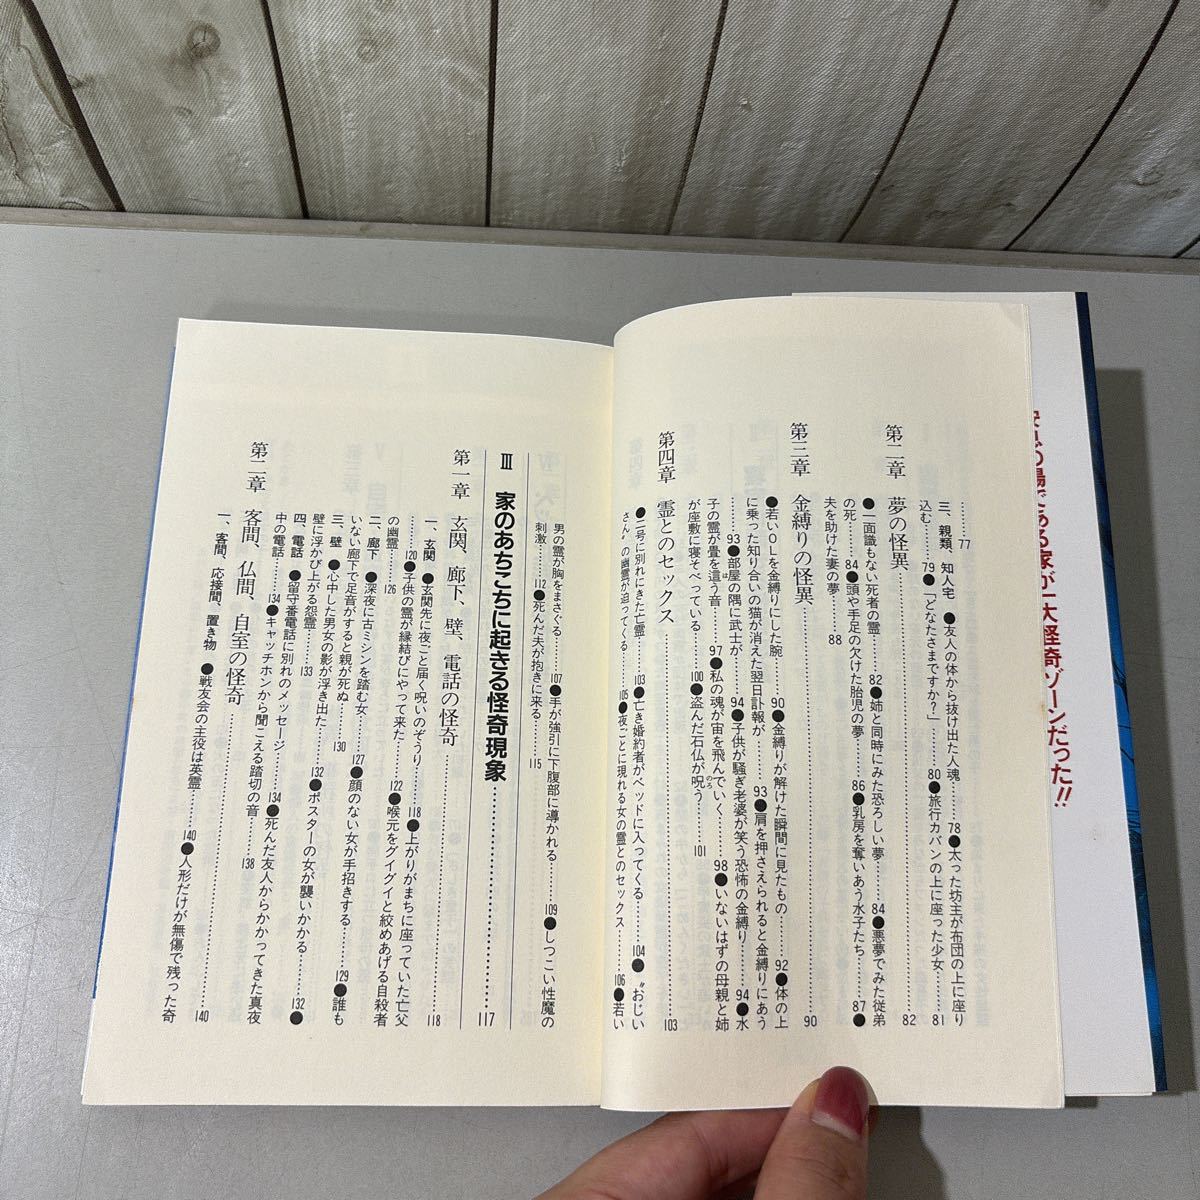 安息の場である家が一大怪奇ゾーンだった!!
………77
三、親類、知人宅 ●友人の体から抜け出た人魂………78●太った坊主が布団の上に座り
込む………79●「どなたさまですか?」………80●旅行カバンの上に座った少女………81
第二章 夢の怪異………82
●一面識もない死者の霊………82●姉と同時にみた恐ろしい夢………84●悪夢でみた従弟
の死………84●頭や手足の欠けた胎児の夢………86●乳房を奪いあう水子たち………87●
夫を助けた妻の夢………88
第三章 金縛りの怪異………90
●若いOLを金縛りにした腕………90●金縛りが解けた瞬間に見たもの………92●体の上
に乗った知り合いの猫が消えた翌日訃報が………93●肩を押さえられると金縛りにあう
………93●部屋の隅に武士が………94●子供が騒ぎ老婆が笑う恐怖の金縛り………94●水
子の霊が畳を這う音………97●私の魂が宙を飛んでいく………98●いないはずの母親と姉
が座敷に寝そべっている………100●盗んだ石仏が呪う………101
第四章 霊とのセックス………103
●二号に別れにきた亡霊………103●亡き婚約者がベッドに入ってくる………104●〝おじい
さん〟の幽霊が迫ってくる………105●夜ごとに現れる女の霊とのセックス………106●若い
男の霊が胸をまさぐる………107●手が強引に下腹部に導かれる………109●しつこい性魔の
刺激………112●死んだ夫が抱きに来る………115
III 家のあちこちに起きる怪奇現象………117
第一章 玄関、廊下、壁、電話の怪奇………118
一、玄関 ●玄関先に夜ごと届く呪いのぞうり………118●上がりがまちに座っていた亡父
………120●子供の霊が縁結びにやって来た………122●喉元をグイグイと絞めあげる自殺者
の幽霊………126
二、廊下 ●深夜に古ミシンを踏む女………127●顔のない女が手招きする………129●誰も
いない廊下で足音がすると親が死ぬ………130
三、壁 ●心中した男女の影が浮き出た………132●ポスターの女が襲いかかる………132●
壁に浮かび上がる怨霊………133
四、電話 ●留守番電話に別れのメッセージ………134●死んだ友人からかかってきた真夜
中の電話………134●キャッチホンから聞こえる踏切の音………138
第二章 客間、仏間、自室の怪奇………140
一、客間、応接間、置き物 ●戦友会の主役は英霊………140●人形だけが無傷で残った奇